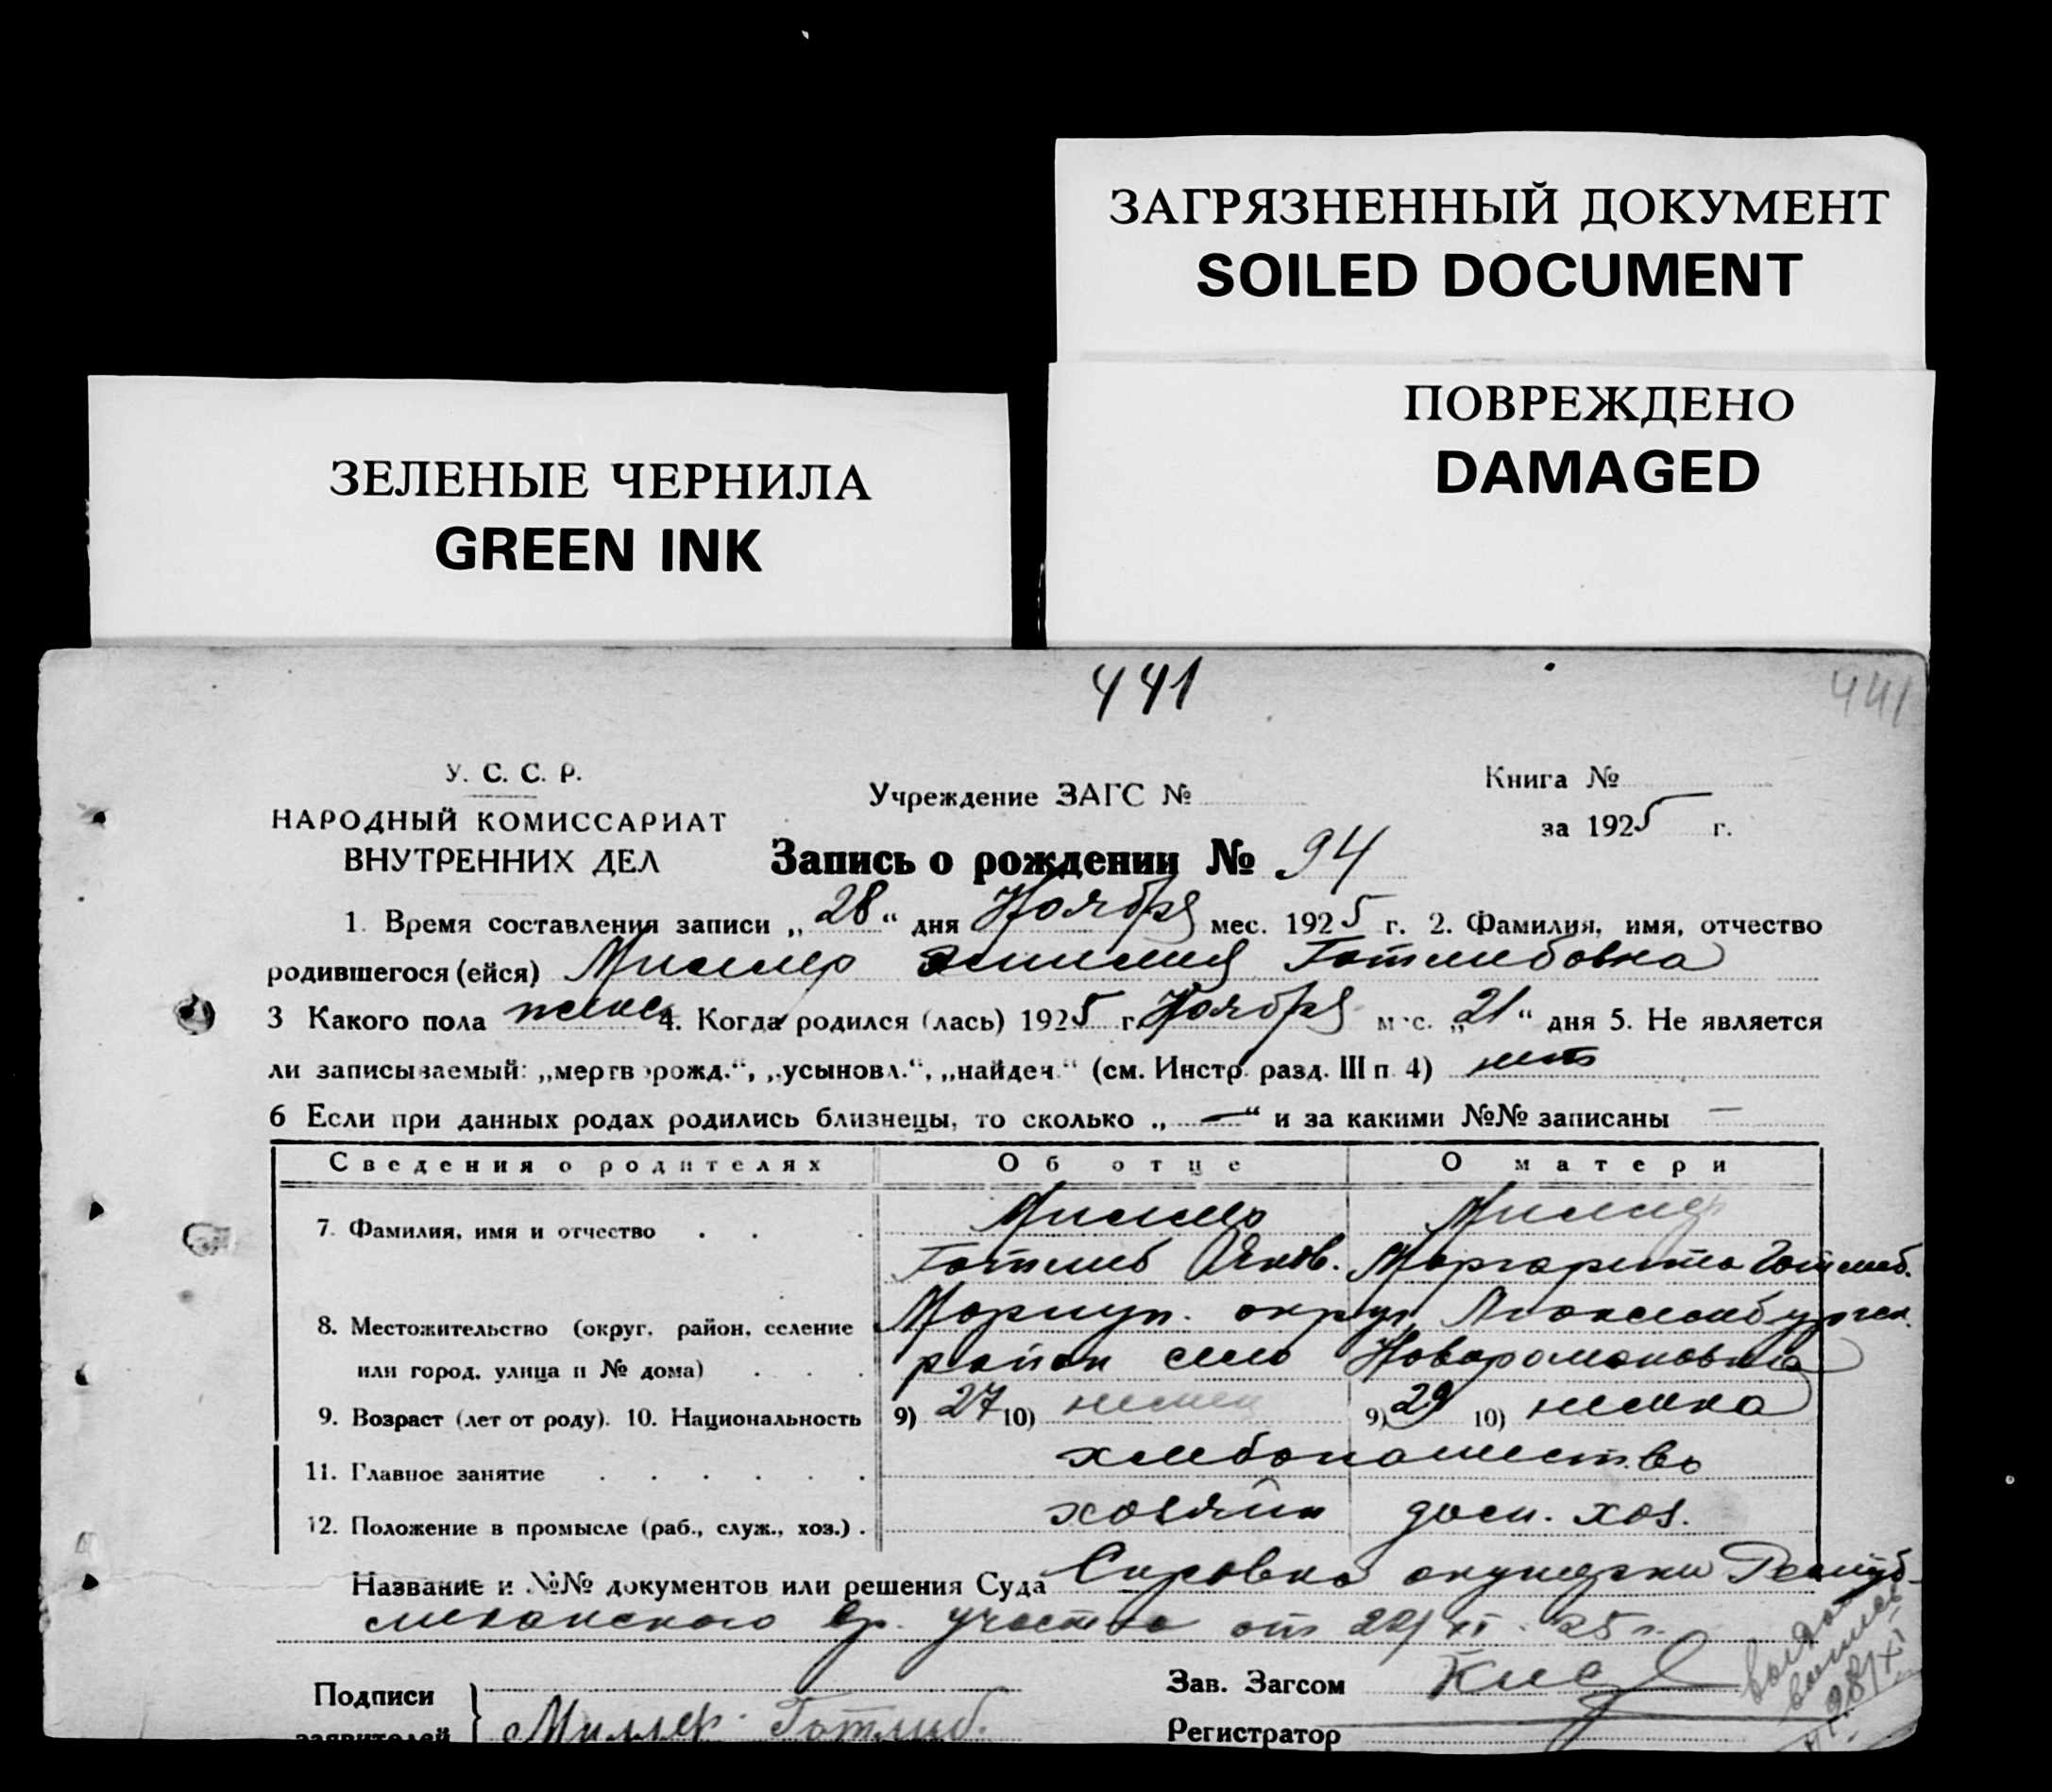 ЗАГРЯЗНЕННЫЙ ДОКУМЕНТ
SOILED DOCUMENT
ПОВРЕЖДЕНО
DAMAGED
ЗЕЛЕНЫЕ ЧЕРНИЛА
GREEN INK
441
441
У. С. С. Р.
НАРОДНЫЙ КОМИССАРИАТ
ВНУТРЕННИХ ДЕЛ
Учреждение ЗАГС №
Книга №
за 1925 г.
Запись о рождении № 94
1. Время составления записи „28“ дня Ноября мес. 1925 г. 2. Фамилия, имя, отчество
родившегося (ейся) Миллер Эмилия Готлибовна
3 Какого пола женс 4. Когда родился (лась) 1925 г. Ноября мес. „21“ дня 5. Не является
ли записываемый: „мертворожд.“, „усыновл.“, „найден.“ (см. Инстр. разд. III п. 4) нет
6 Если при данных родах родились близнецы, то сколько „—“ и за какими №№ записаны —
Сведения о родителях Об отце О матери
7. Фамилия, имя и отчество Миллер Миллер
Готлиб Яков. Маргарита Готлиб.
8. Местожительство (округ, район, селение Мариуп. округ, Люксембургск.
или город, улица и № дома) район село Новоромановка
9. Возраст (лет от роду). 10. Национальность 9) 27 10) немец 9) 29 10) немка
11. Главное занятие хлебопашество
12. Положение в промысле (раб., служ., хоз.) хозяин дом. хоз.
Название и №№ документов или решения Суда Справка акушерки Респуб-
ликанского вр. участка от XI. 25 г.
Подписи
заявителей
Миллер Готлиб.
Зав. Загсом
Регистратор
28/XI